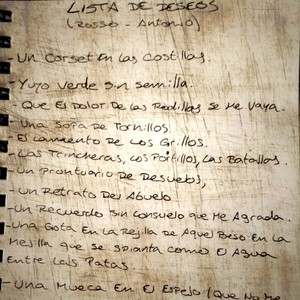 LISTA DE DESEOS
(ROSSO - ANTONIO)
- UN CORSET EN LAS COSTILLAS.
- YUYO VERDE SIN SEMILLA.
- QUE EL DOLOR DE LAS RODILLAS SE ME VAYA.
- UNA SOPA DE TORNILLOS.
EL LAMENTO DE LOS GRILLOS.
- LAS TRINCHERAS, LOS PORTILLOS, LAS BATALLAS.
- UN PRONTUARIO DE DESVELOS,
- UN RETRATO DEL ABUELO
- UN RECUERDO SIN CONSUELO QUE ME AGRADA.
- UNA GOTA EN LA REJILLA DE AQUEL BESO EN LA
MEJILLA QUE SE ESPIANTA COMO EL AGUA
ENTRE LAS PATAS.
- UNA MUECA EN EL ESPEJO (QUE NO ME